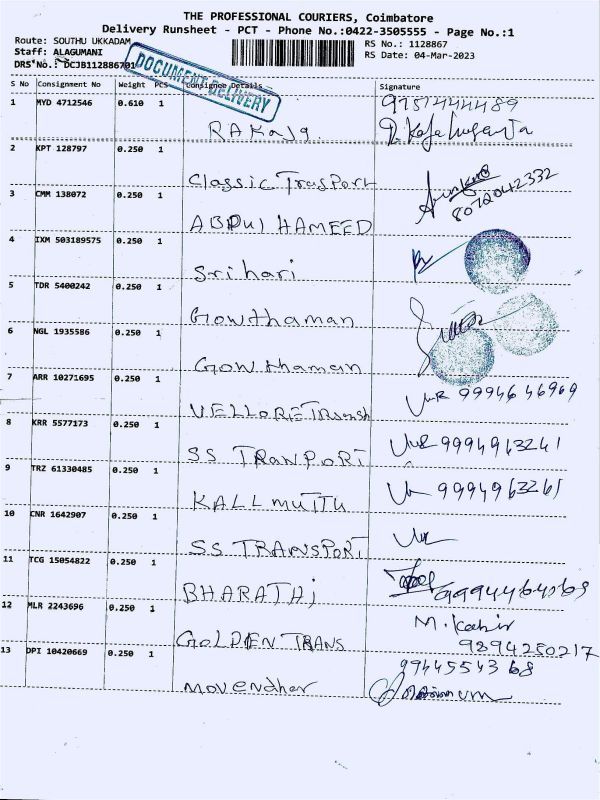 THE PROFESSIONAL COURIERS, Coimbatore
Delivery Runsheet - PCT - Phone No.:0422-3505555 - Page No.:1
Route: SOUTHU UKKADAM
RS No.: 1128867
Staff: ALAGUMANI
RS Date: 04-Mar-2023
DRS No.: DCJB112886701
DOCUMENT DELIVERY
S No Consignment No Weight PCS Consignee Details Signature
1 MYD 4712546 0.610 1 9751444489
RAKaja
2 KPT 128797 0.250 1
Classic Trasport
8072042332
3 CMM 138072 0.250 1
ABDUl HAMEED
4 IXM 503189575 0.250 1
Srihari
5 TDR 5400242 0.250 1
Gowthaman
6 NGL 1935586 0.250 1
Gowthaman
7 ARR 10271695 0.250 1
VELLORE 9994646969
8 KRR 5577173 0.250 1
SS TRANPORT 9994963261
9 TRZ 61330485 0.250 1
KALLMUTTU 9994963261
10 CNR 1642907 0.250 1
SS TRANSPORT
11 TCG 15054822 0.250 1
BHARATHi 9994464069
12 MLR 2243696 0.250 1 M. Kabir
GOLDEN TRANS 9894280217
13 DPI 10420669 0.250 1 9944554368
movendher